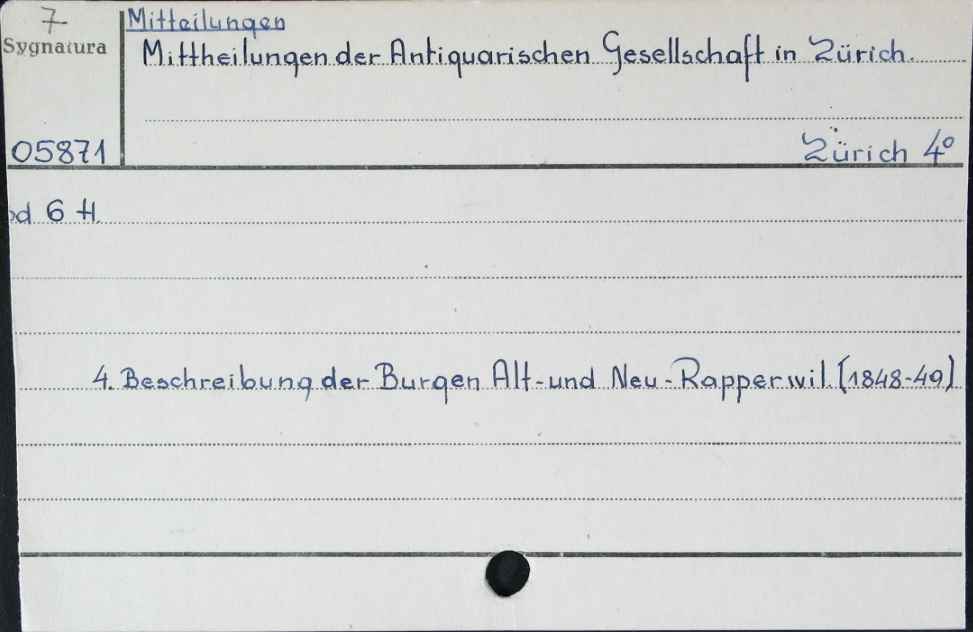 7
Mitteilungen
Sygnatura
Mittheilungen der Antiquarischen Gesellschaft in Zürich.
05871
Zürich 4º
6 H.
4. Beschreibung der Burgen Alt- und Neu-Rapperwil. (1848-49)